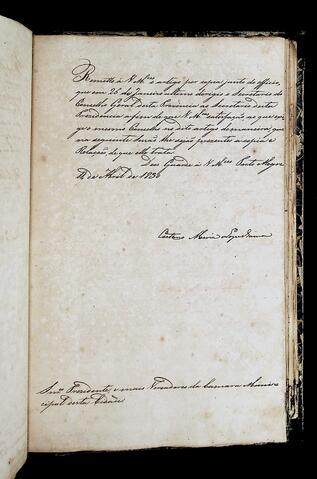 Remetto á V. M.ces o artigo por copia junto do officio,
que em 26 de Janeiro ultimo dirigio o Secretario do
Conselho Geral desta Provincia ao Secretario desta
Presidencia afim de que V. M.ces satisfação ao que exi-
gio o mesmo Conselho no dito artigo de maneira, que
na seguinte Sessão lhe sejão presentes a copia e
Relação, de que elle trata.
Deos Guarde á V. M.ces Porto Alegre
de Abril de 1830
Caetano Maria Lopes Gama
Snr.es Presidente, e mais Vereadores da Camara Muni-
cipal desta Cidade